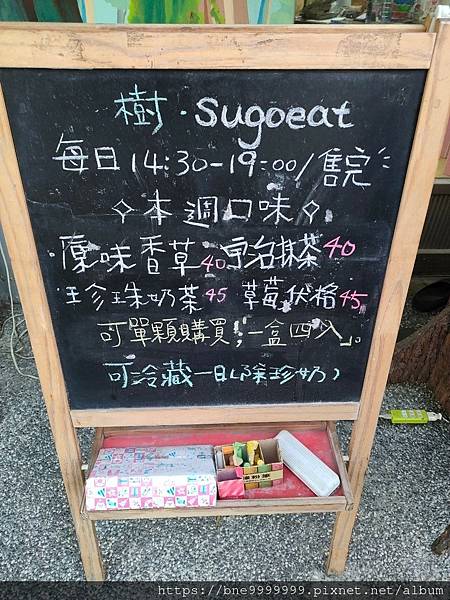 樹·Sugoeat
每日14:30-19:00/售完
◇本週口味◇
原味香草40 宇治抹茶40
珍珠奶茶45 草莓優格45
可單顆購買;一盒四入。
可冷藏一日(除珍奶)
https://bne9999999.pixnet.net/album